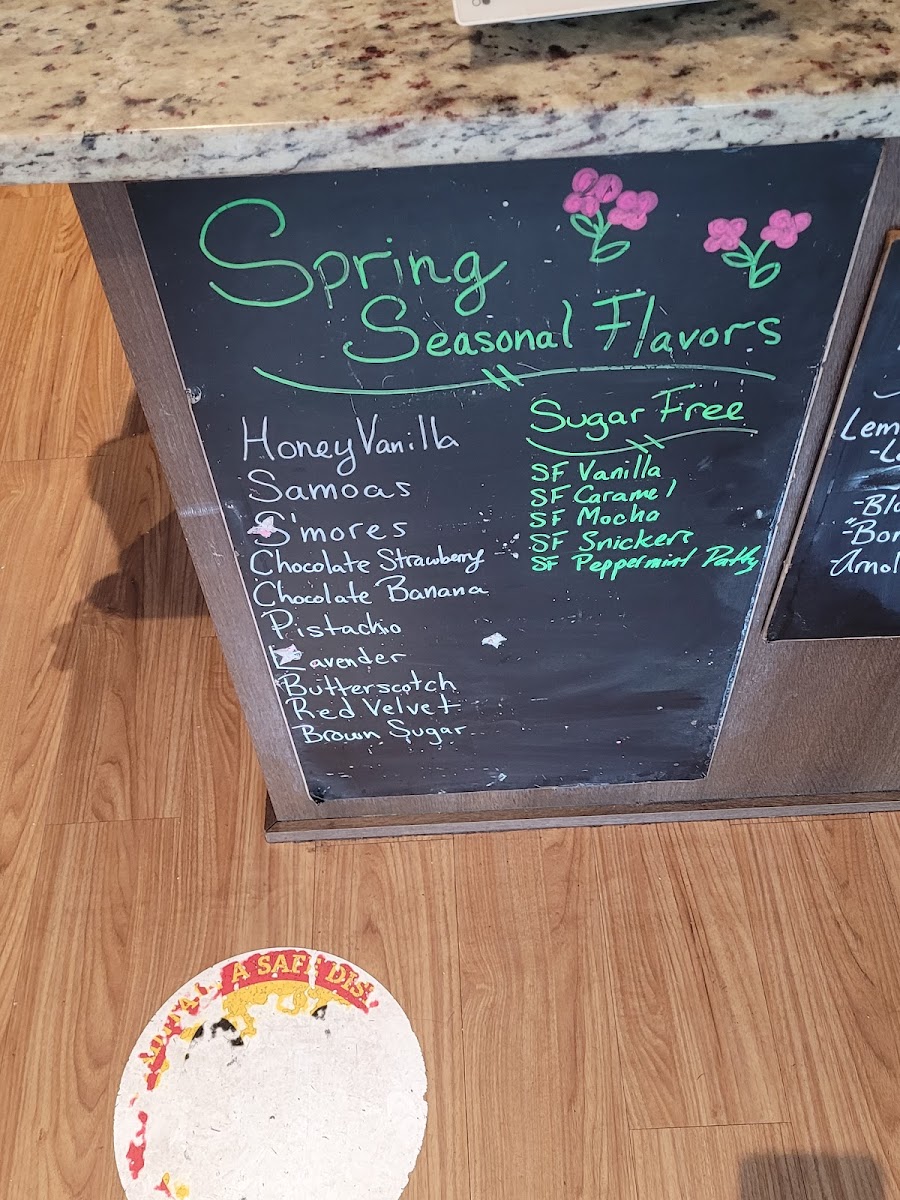 Spring
Seasonal Flavors
Honey Vanilla
Samoas
S'mores
Chocolate Strawberry
Chocolate Banana
Pistachio
Lavender
Butterscotch
Red Velvet
Brown Sugar
Sugar Free
SF Vanilla
SF Caramel
SF Mocha
SF Snickers
SF Peppermint Patty
Lem
-L
-Bl
"Bor
Arnol
A SAFE DIS